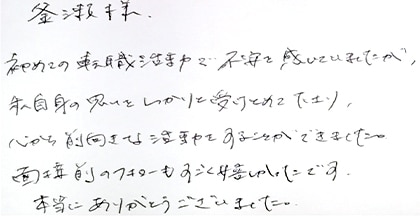 釜瀬様、
初めての転職活動で不安を感じていましたが、
私自身の思いをしっかりと受けとめて下さり、
心から前向きな活動をすることができました。
面接前のフォローもすごく嬉しかったです。
本当にありがとうございました。